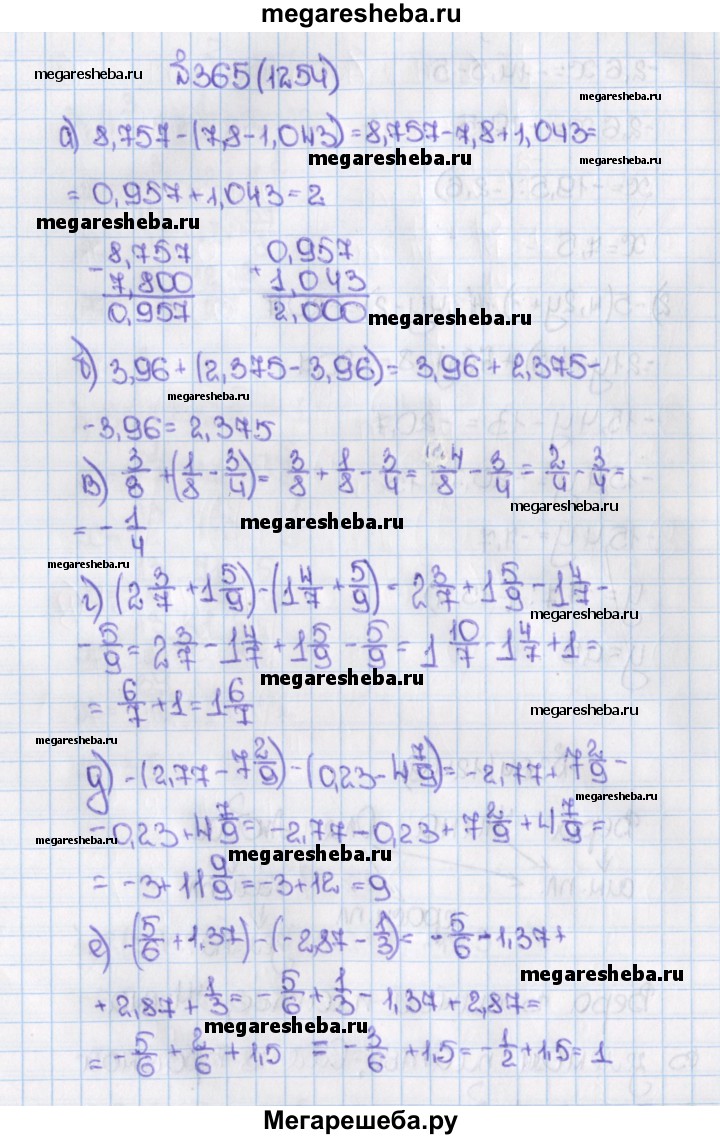 megaresheba.ru
megaresheba.ru №365(1254) megaresheba.ru
а) 8,757-(7,8-1,043)=8,757-7,8+1,043=
megaresheba.ru megaresheba.ru
= 0,957+1,043=2
megaresheba.ru
8,757 0,957
- 7,800 + 1,043
0,957 2,000 megaresheba.ru
б) 3,96+(2,375-3,96)= 3,96+2,375-
megaresheba.ru megaresheba.ru
-3,96=2,375
в) 3/8+(1/8-3/4)= 3/8+1/8-3/4= 4/8-3/4= 2/4-3/4=
megaresheba.ru
= -1/4 megaresheba.ru
г) (2 3/7+1 5/9)-(1 4/7+5/9)= 2 3/7+1 5/9-1 4/7-
megaresheba.ru megaresheba.ru
-5/9= 2 3/7-1 4/7+1 5/9-5/9= 1 10/7-1 4/7+1=
megaresheba.ru
= 6/7+1=1 6/7 megaresheba.ru
megaresheba.ru
д) -(2,77-7 2/9)-(0,23-4 7/9)= -2,77+7 2/9-
megaresheba.ru
-0,23+4 7/9= -2,77-0,23+7 2/9+4 7/9=
megaresheba.ru megaresheba.ru
= -3+11 9/9=-3+12=9
е) -(5/6+1,37)-(-2,87-1/3)= -5/6-1,37+
megaresheba.ru
+2,87+1/3= -5/6+1/3-1,37+2,87=
megaresheba.ru
= -5/6+2/6+1,5 = -3/6+1,5=-1/2+1,5=1
Мегарешеба.ру